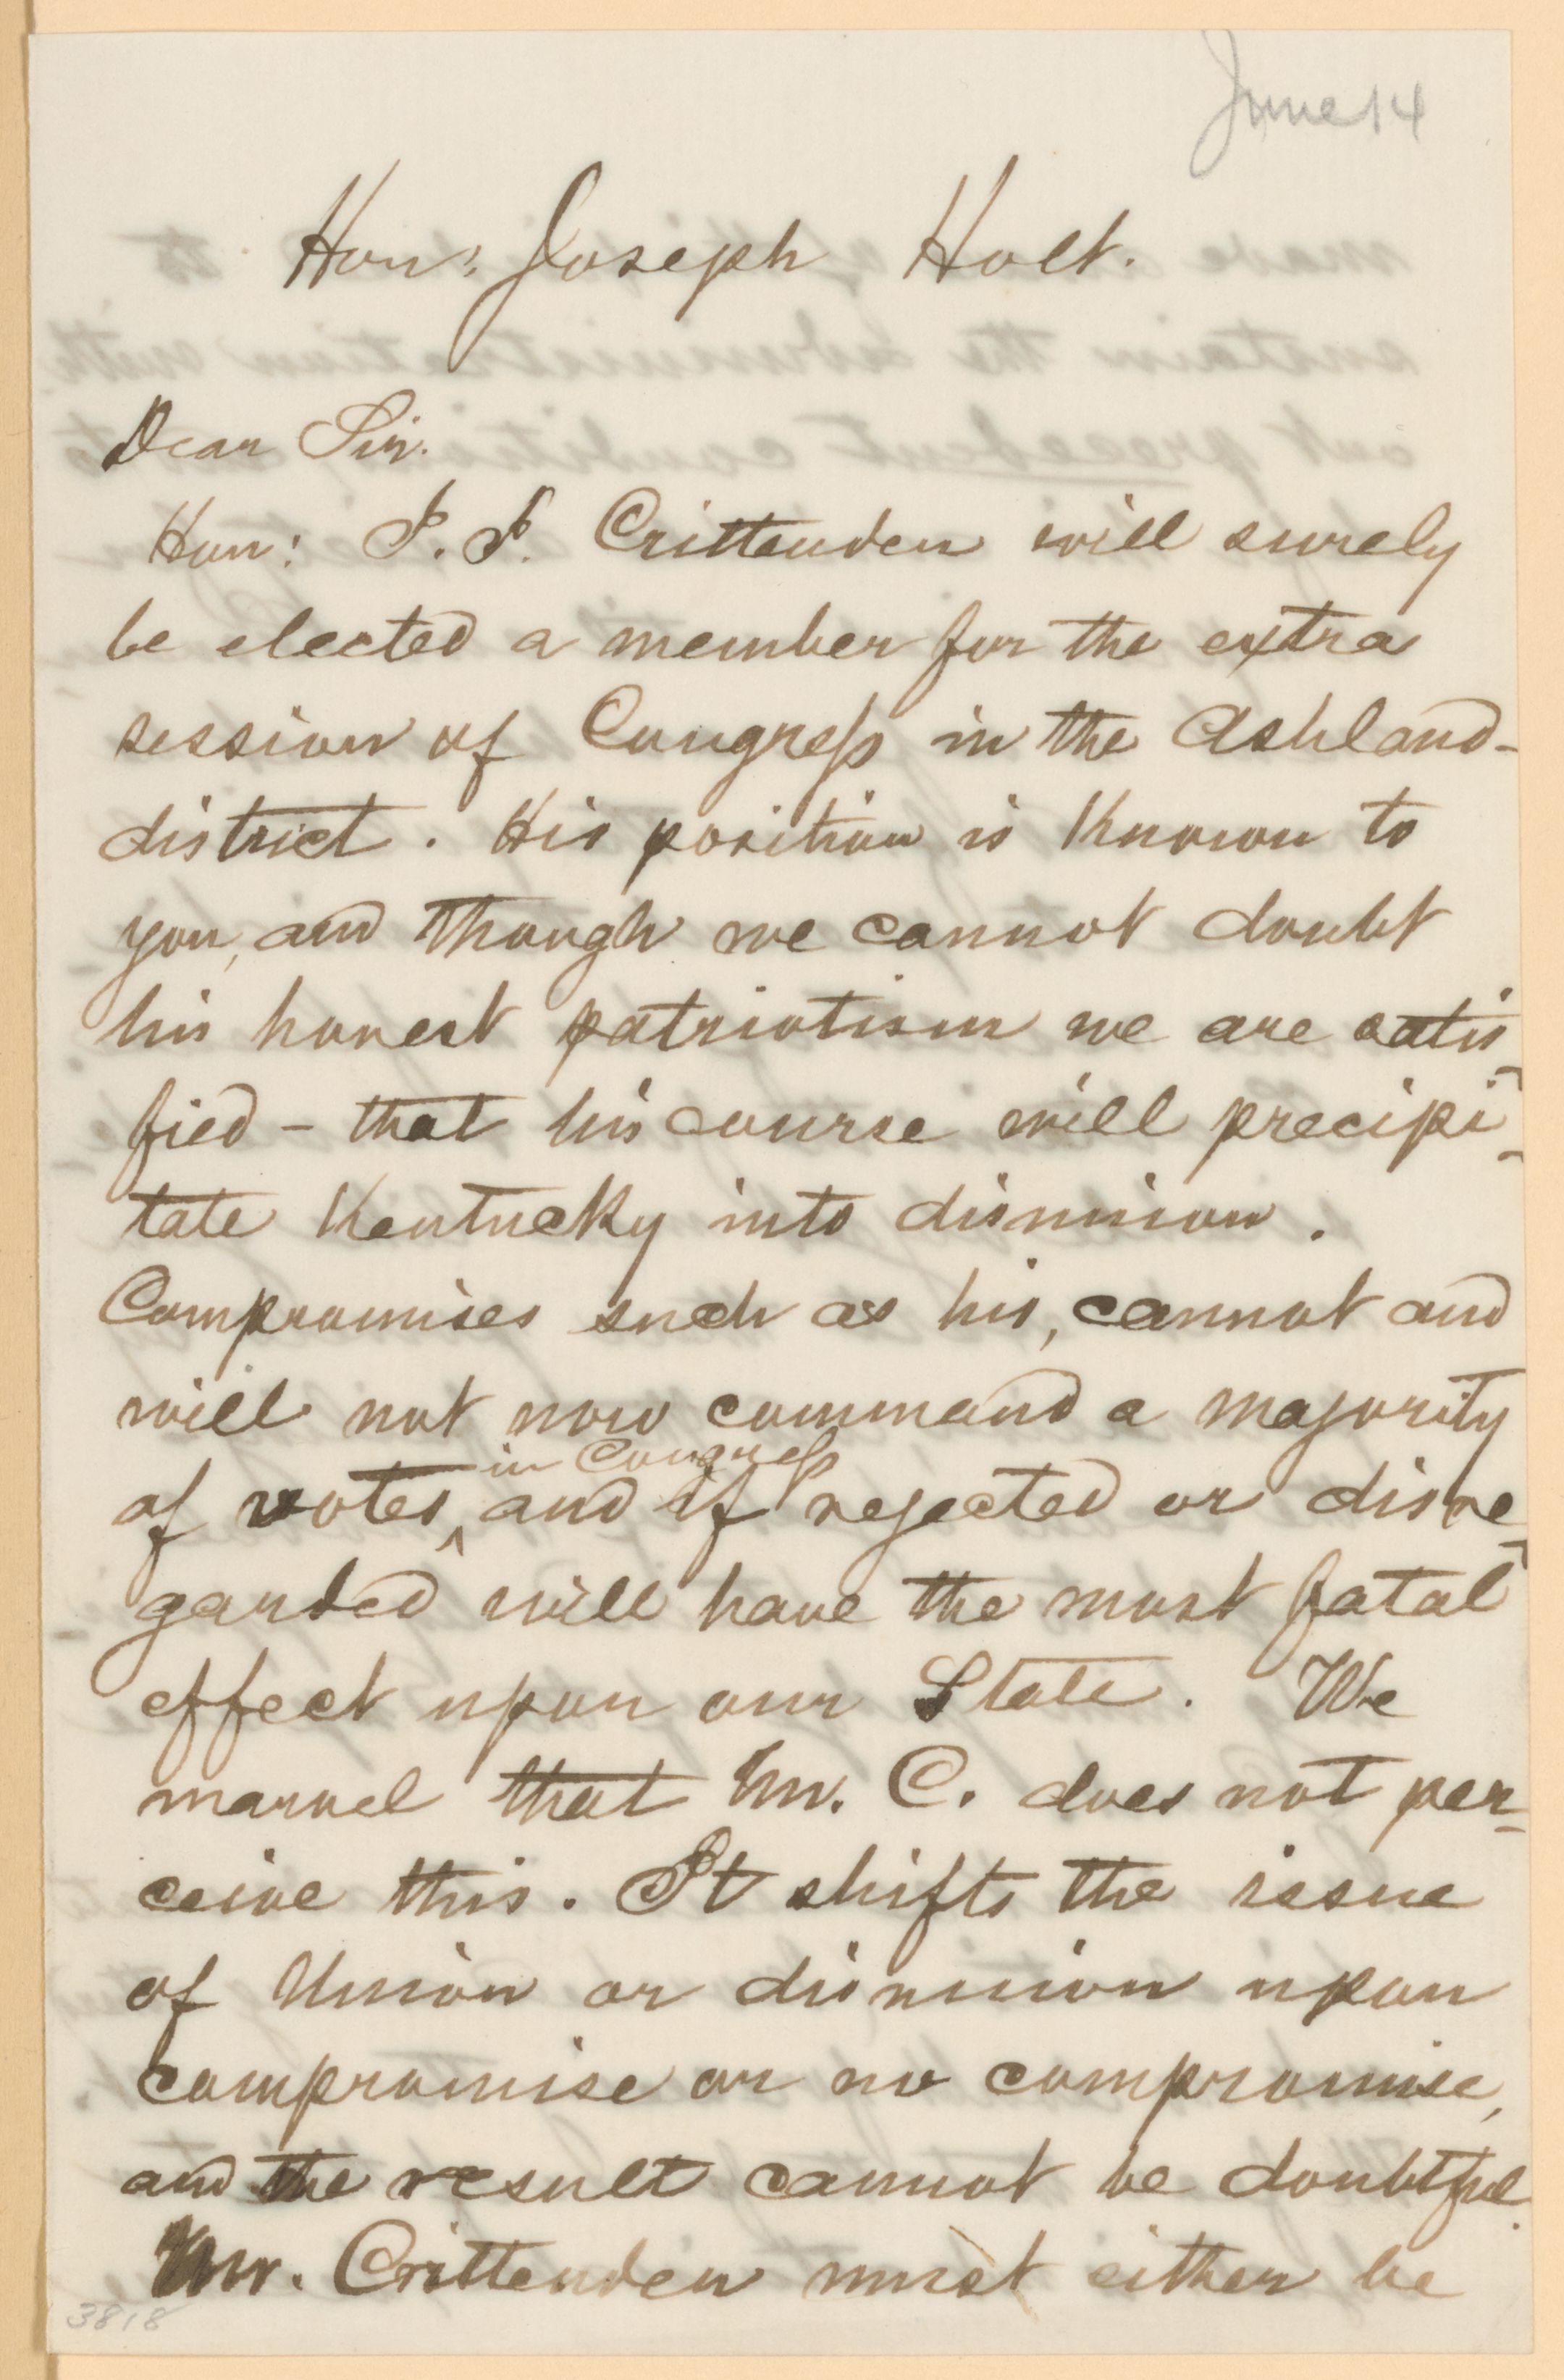 June 14
Hon: Joseph Holt.
Dear Sir.
Hon: J. J. Crittenden will surely
be elected a member for the extra
session of Congress in the Ashland-
district. His position is Known to
you, and though we cannot doubt
his honest patriotism we are satis-
fied - that his course will precipi-
tate Kentucky into disunion.
Compromises such as his, cannot and
will not now command a majority
in Congress
of votes, and if rejected or disre-
garded will have the most fatal
effect upon our State. We
marvel that Mr. C. does not per-
ceive this. It shifts the issue
of Union or disunion upon
compromise or no compromise,
and the result cannot be doubtful.
Mr. Crittenden must either be
3818